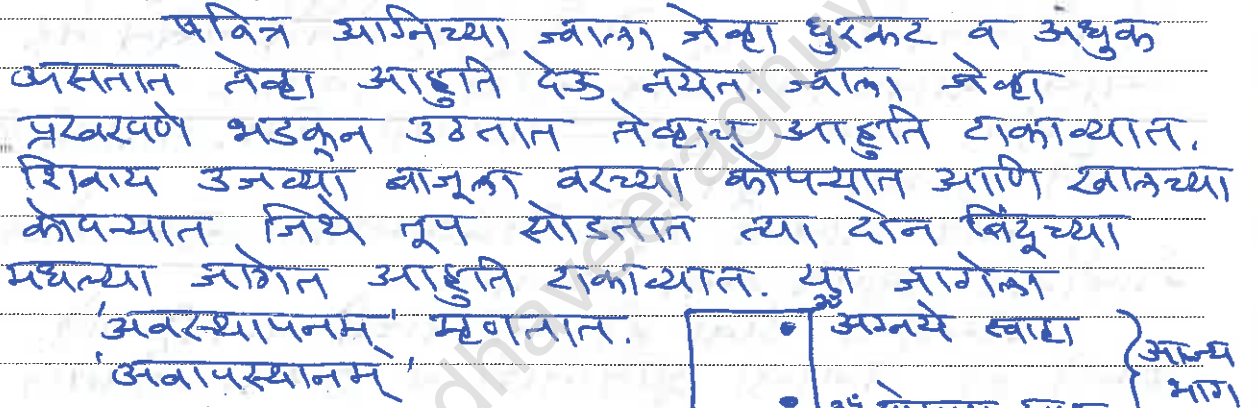 पवित्र अग्निच्या ज्वाला जेव्हा धुरकट व अंधुक
असतात तेव्हा आहुति देऊ नयेत. ज्वाला जेव्हा
प्रखरपणे भडकून उठतात तेव्हाच आहुति टाकाव्यात.
शिवाय उजव्या बाजूला वरच्या कोपऱ्यात आणि खालच्या
कोपऱ्यात जिथे तूप सोडतात त्या दोन बिंदूच्या
मधल्या जागेत आहुति टाकाव्यात. या जागेला
'अवस्थापनम्' म्हणतात.
'अवापस्थानम्'
ॐ अग्नये स्वाहा
आज्य
भाग